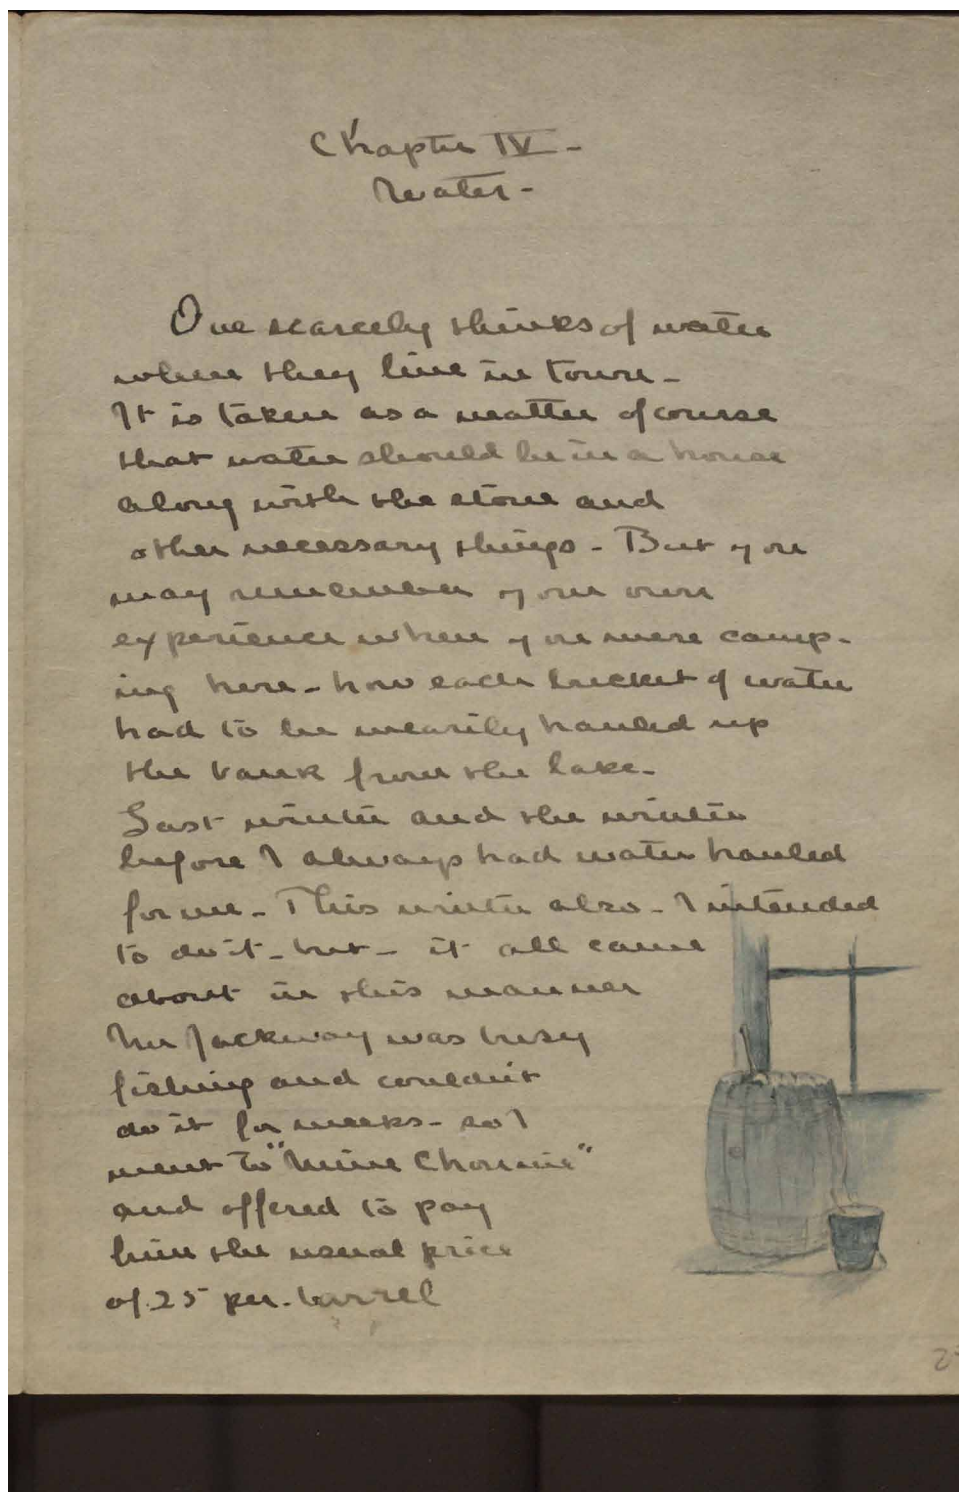 Chapter IV -
Water -
One scarcely thinks of water
when they live in town -
It is taken as a matter of course
that water should be in a house
along with the stove and
other necessary things - But you
may remember your own
experience when you were camp-
ing here - how each bucket of water
had to be wearily hauled up
the bank from the lake -
Last winter and the winter
before I always had water hauled
for me - This winter also - I intended
to do it - but - it all came
about in this manner
Mr Jackway was busy
fishing and couldn't
do it for weeks - so I
went to "Mine
and offered to pay
him the usual price
of .25 per. barrel